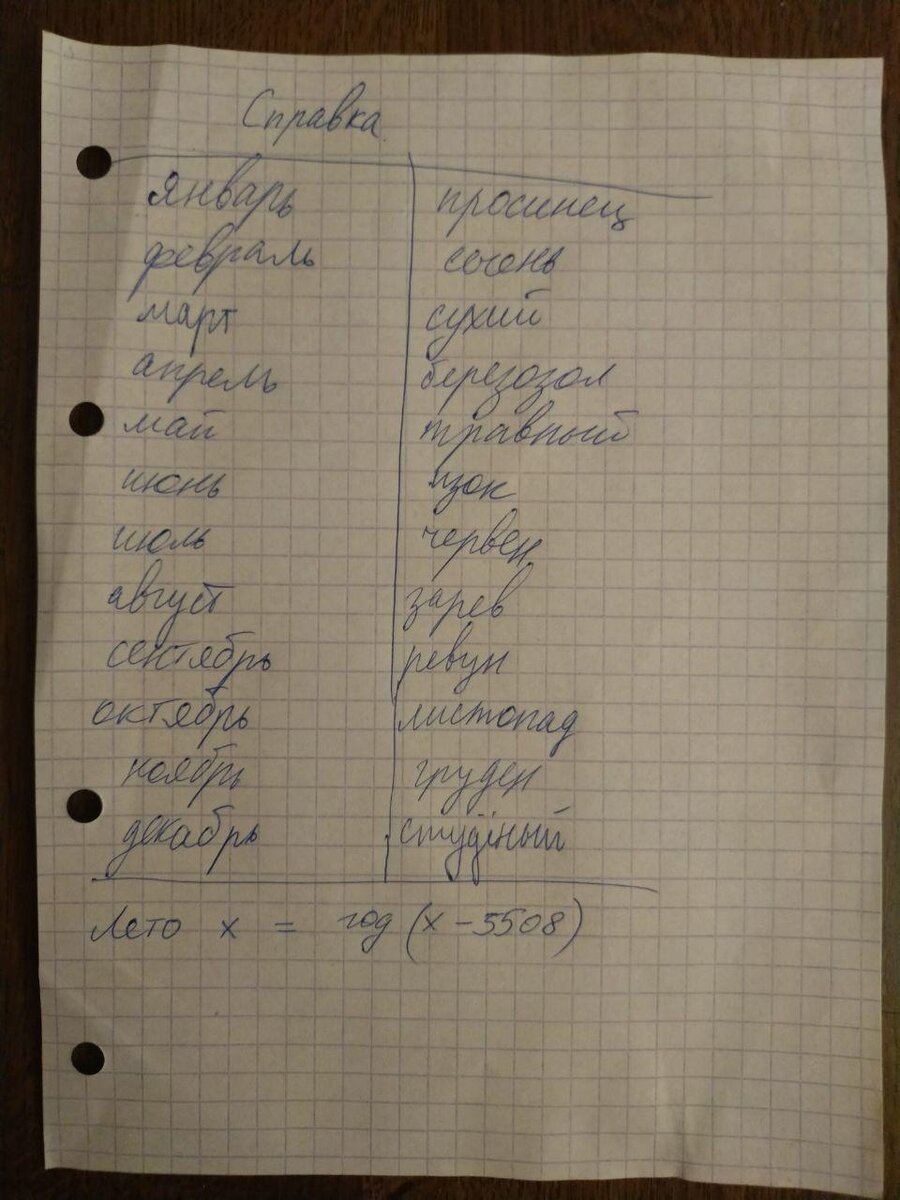 Справка
январь просинец
февраль сечень
март сухий
апрель березозол
май травный
июнь изок
июль червен
август зарев
сентябрь ревун
октябрь листопад
ноябрь груден
декабрь студіный
Лето x = год (x - 5508)